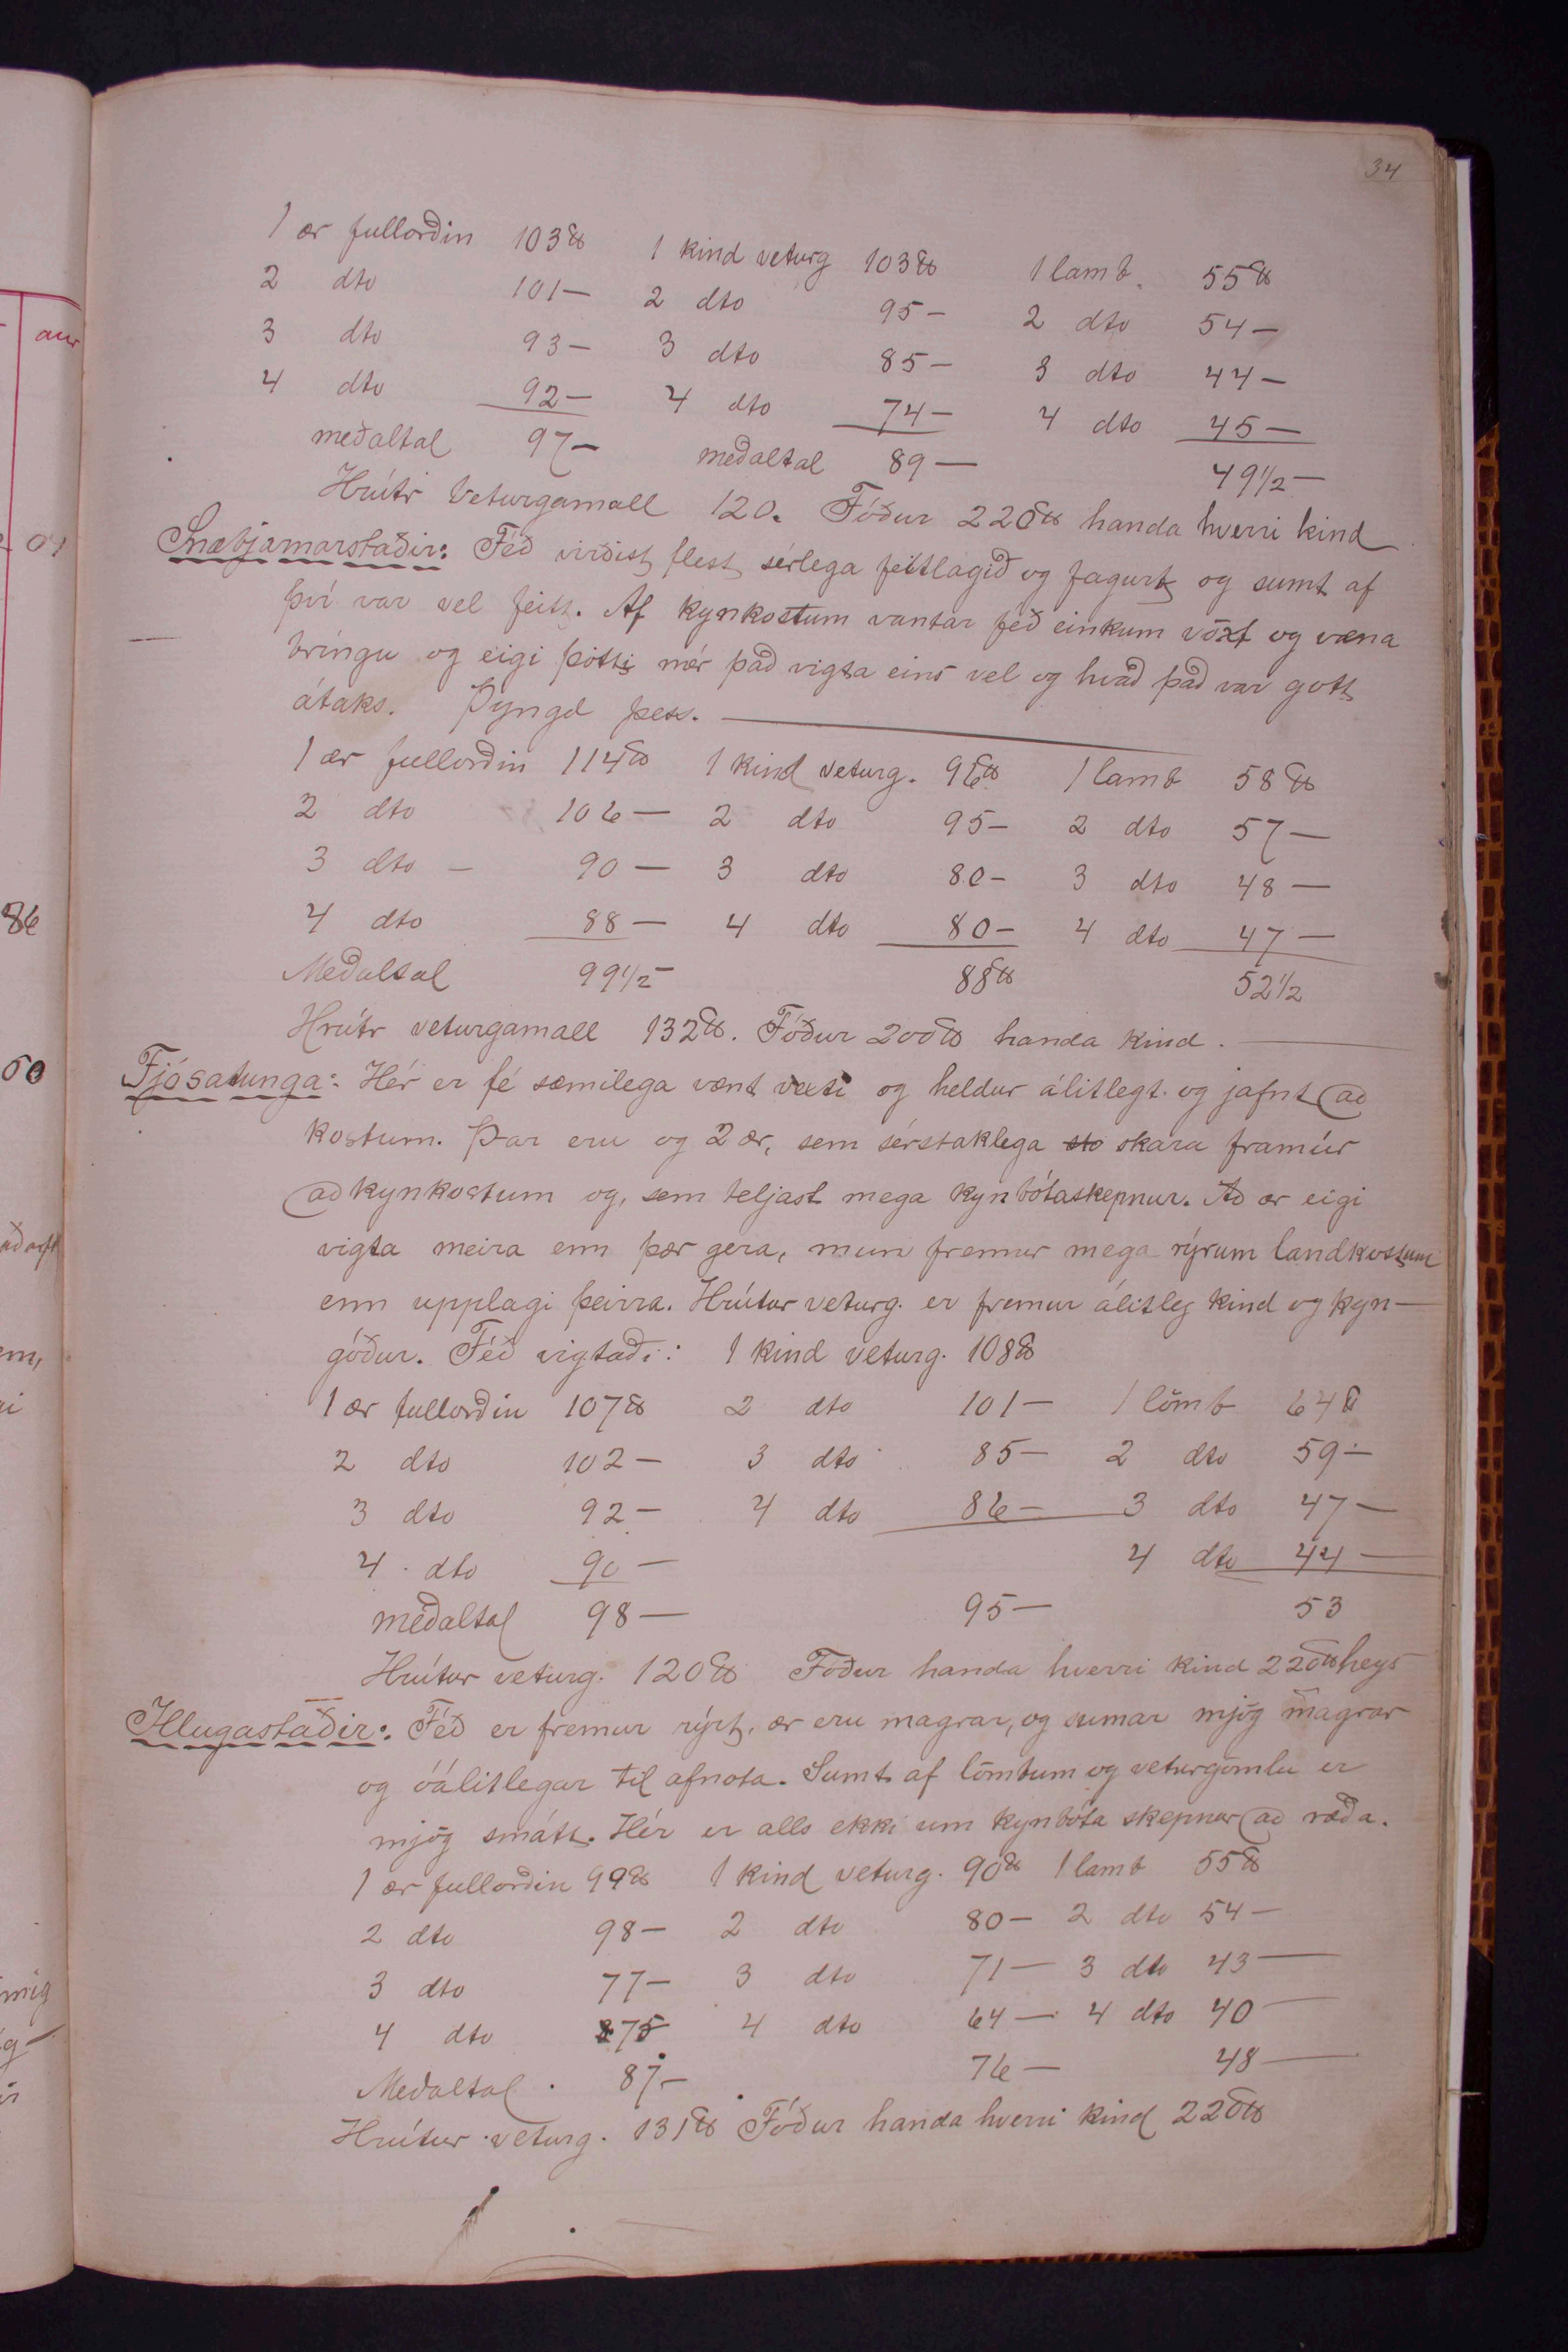 34
1 ær fullorðin 103 ℔ 1 kind veturg 103 ℔ 1 lamb. 55 ℔
2 dto 101— 2 dto 95— 2 dto 54—
3 dto 93— 3 dto 85— 3 dto 44—
4 dto 92— 4 dto 74— 4 dto 45—
meðaltal 97— meðaltal 89— 49 1/2—
Hrútr veturgamall 120. Fóður 220 ℔ handa hverri kind
Snæbjarnarstaðir: Féð virðist flest sérlega feitlagið og fagurt og sumt af
því var vel feitt. Af kynkostum vantar féð einkum vöxt og væna
bringu og eigi þótti mér það vigta eins vel og hvað það var gott
átaks. Þyngd þess. —
1 ær fullorðin 114 ℔ 1 kind veturg. 96 ℔ 1 lamb 58 ℔
2 dto 106— 2 dto 95— 2 dto 57—
3 dto — 90— 3 dto 80— 3 dto 48—
4 dto 88— 4 dto 80— 4 dto 47—
Meðaltal 99 1/2— 88 ℔ 52 1/2
Hrútr veturgamall 132 ℔. Fóður 200 ℔ handa kind. —
Fjósatunga: Hér er fé sæmilega vænt og heldur álitlegt og jafnt að
kostum. Þar eru og 2 ær, sem sérstaklega sto skara framúr
að kynkostum og, sem teljast mega kynbótaskepnur. Að ær eigi
vigta meira enn þær gera, mun fremur mega rýrum landkostum
enn upplagi þeirra. Hrútur veturg. er fremur álitleg kind og kyn—
góður. Féð vigtaði: 1 kind veturg. 108 ℔
1 ær fullorðin 107 ℔ 2 dto 101— 1 lömb 64 ℔
2 dto 102— 3 dto 85— 2 dto 59—
3 dto 92— 4 dto 86— 3 dto 47—
4 dto 90— 4 dto 44—
meðaltal 98— 95— 53
Hrútur veturg. 120 ℔ Fóður handa hverri kind 220 ℔ heys
Illugastaðir: Féð er fremur rýrt, ær eru magrar, og sumar mjög magrar
og óálitlegar til afnota. Sumt af lömbum og veturgömlu er
mjög smátt. Hér er alls ekki um kynbóta skepnur að ræða.
1 ær fullorðin 99 ℔ 1 kind veturg. 90 ℔ 1 lamb 55 ℔
2 dto 98— 2 dto 80— 2 dto 54—
3 dto 77— 3 dto 71— 3 dto 43—
4 dto 75 4 dto 64— 4 dto 40—
Meðaltal 87— 76— 48—
Hrútur veturg. 131 ℔ Fóður handa hverri kind 220 ℔